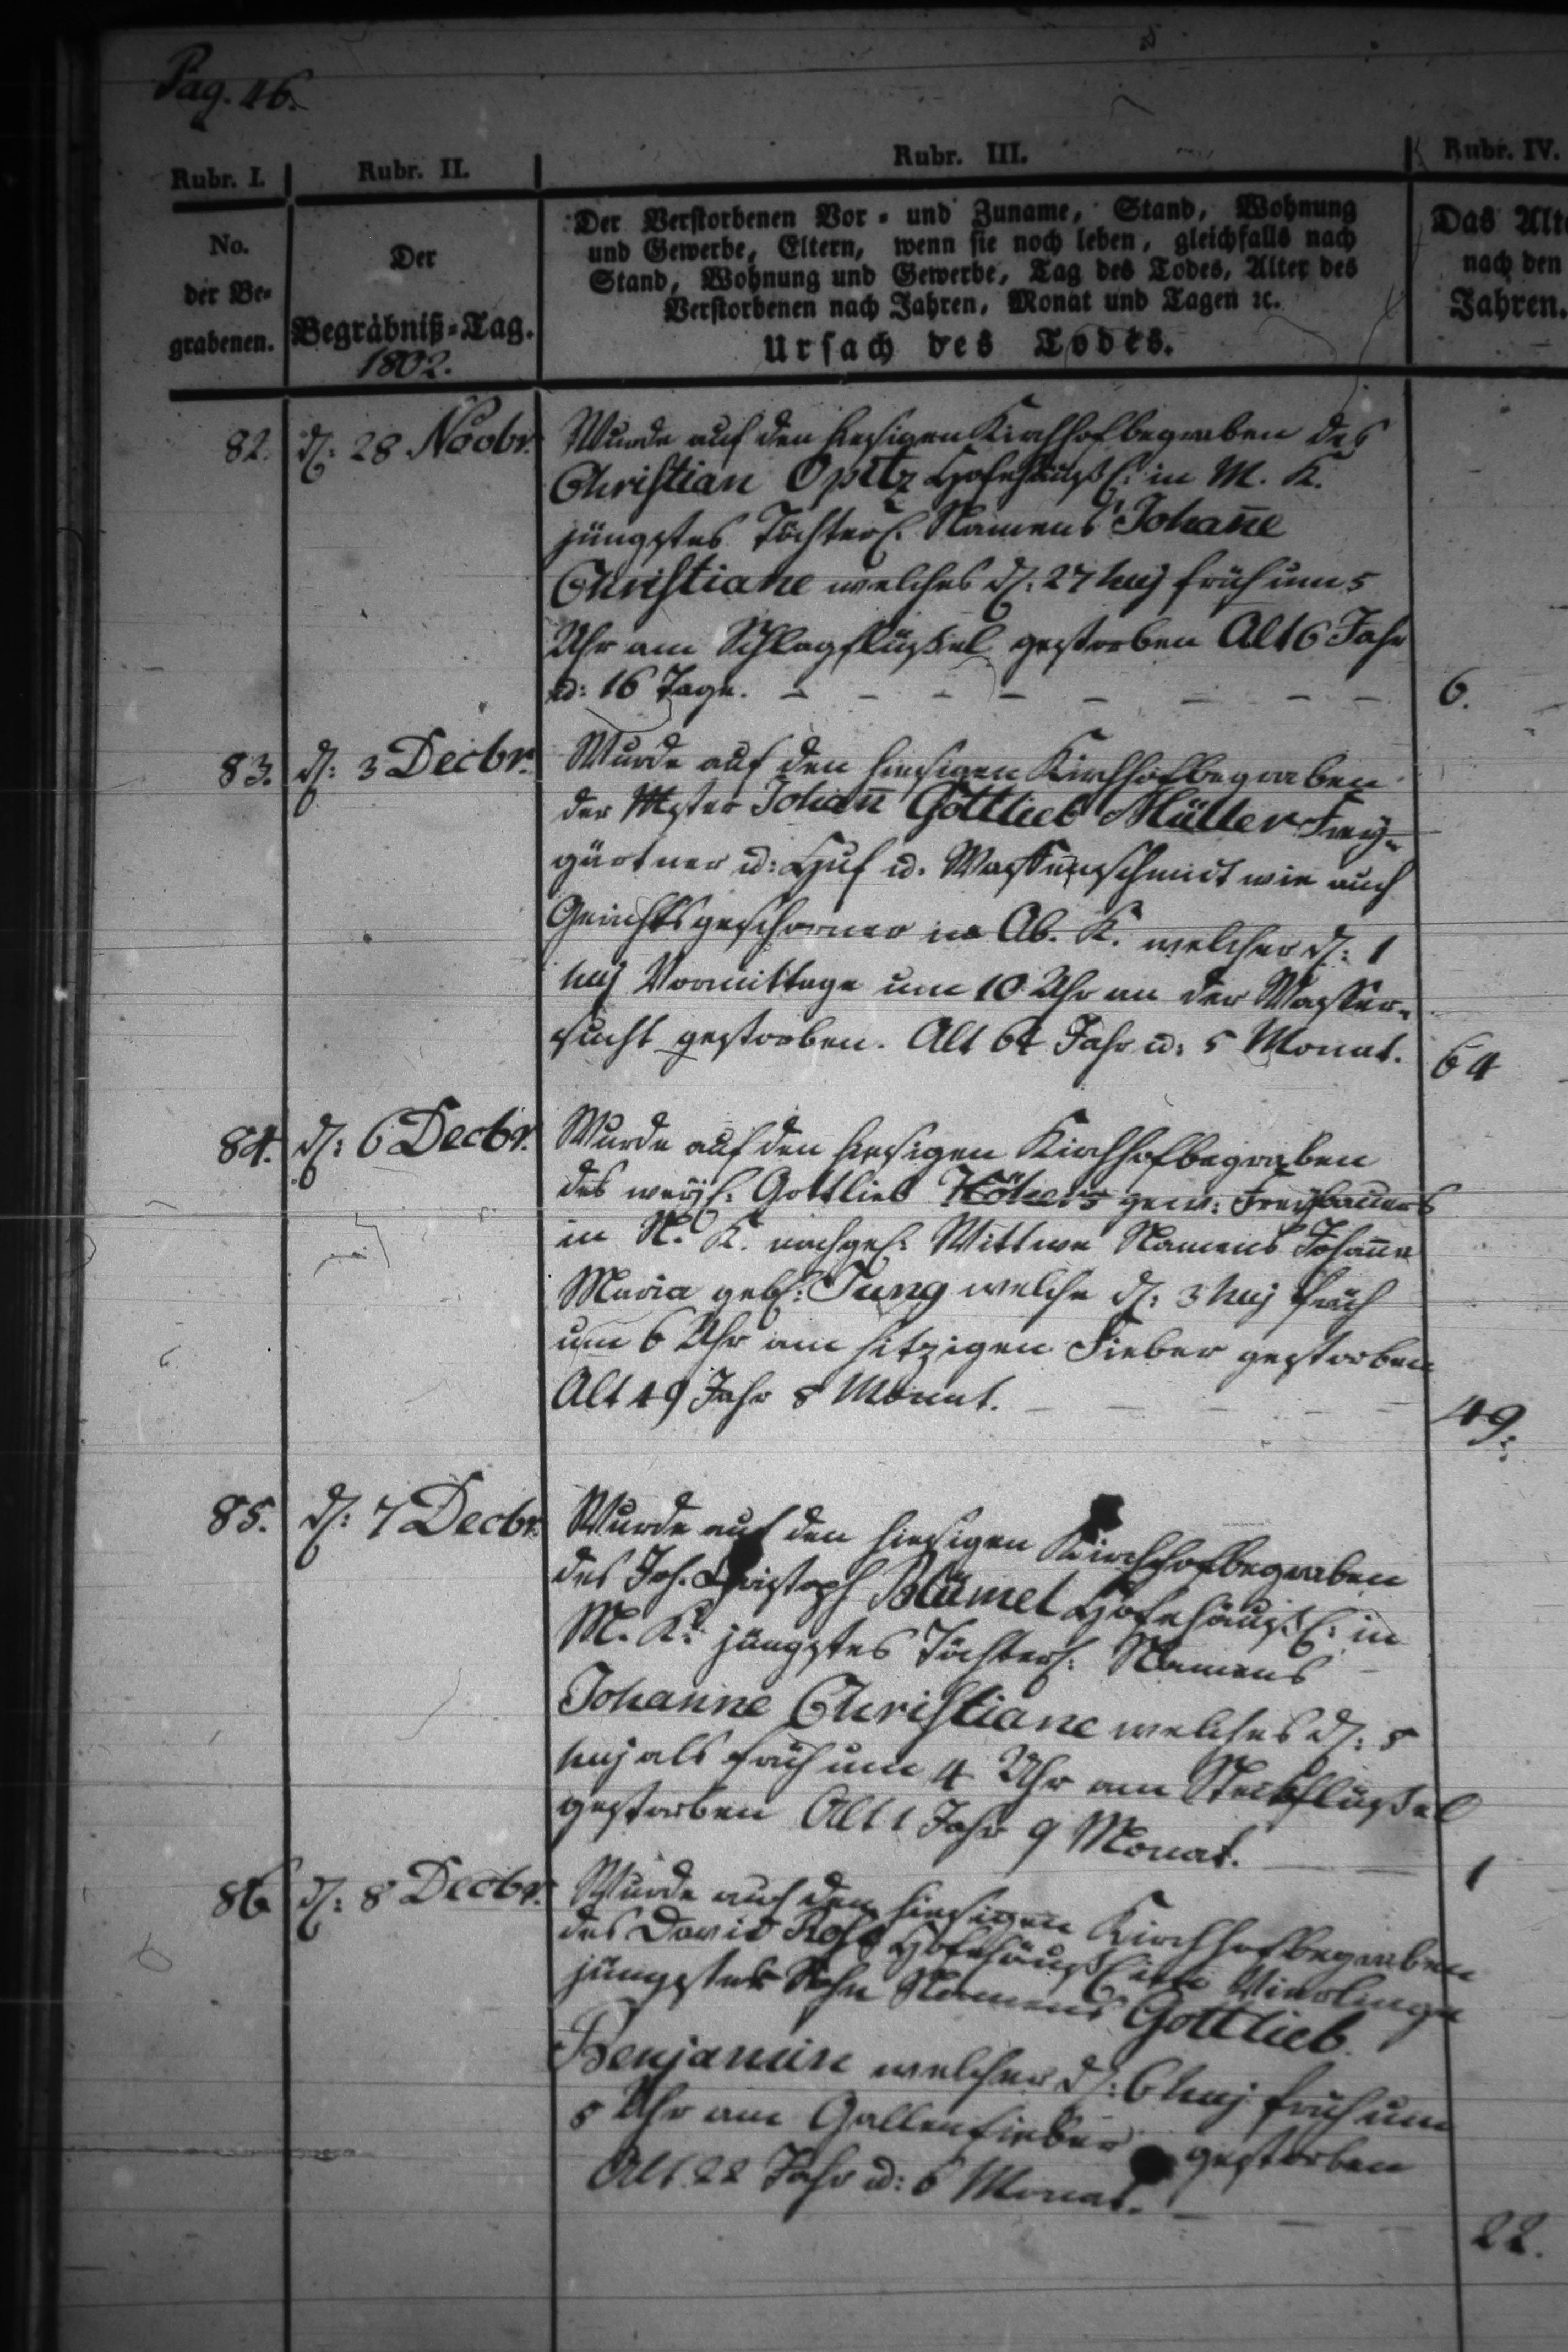 Pag. 46.
Rubr. I. Rubr. II. Rubr. III. Rubr. IV.
No. der Be= grabenen.
Der Begräbniß=Tag.
1802.
Der Verstorbenen Vor= und Zuname, Stand, Wohnung
und Gewerbe, Eltern, wenn sie noch leben, gleichfalls nach
Stand, Wohnung und Gewerbe, Tag des Todes, Alter des
Verstorbenen nach Jahren, Monat und Tagen ꝛc.
Ursach des Todes.
Das Alt
nach den
Jahren.
82. d: 28 Novbr. Wurde auf den hiesigen Kirchhof begraben des
Christian Opitz Hofehäusl: in M. K.
jüngstes Töchterl. Namens Johañe
Christiane welches d: 27 huj früh um 5
Uhr am Schlagflüßel gestorben Alt 6 Jahr
u: 16 Tage. 6.
83. d: 3 Decbr. Wurde auf den hiesigen Kirchhof begraben
der Mster Johañ Gottlieb Müller Frey-
gärtner u: Huf u. Waffenschmidt wie auch
Gerichtsgeschworner in Ob. K. welcher d: 1
huj Vormittags um 10 Uhr an der Waßer-
sucht gestorben. Alt 64 Jahr u: 5 Monat. 64
84. d: 6 Decbr. Wurde auf den hiesigen Kirchhof begraben
des weyl: Gottlieb gew: Freybauers
in N. K. nachgel: Wittwe Namens Johañe
Maria geb: Jung welche d: 3 huj früh
um 6 Uhr am hitzigen Fieber gestorben
Alt 49 Jahr 8 Monat. 49.
85. d: 7 Decbr. Wurde auf den hiesigen Kirchhof begraben
des Joh. Christoph Blümel Hofehäusl: in
M. K. jüngstes Töchterl: Namens
Johanne Christiane welches d: 5
huj als früh um 4 Uhr am Steckflüßel
gestorben Alt 1 Jahr 9 Monat. 1
86. d: 8 Decbr. Wurde auf den hiesigen Kirchhof begraben
des David Hofehäusl:
jüngster Sohn Namens Gottlieb
Benjamin welcher d: 6 huj früh um
5 Uhr am Gallenfieber gestorben
Alt 22 Jahr u: 6 Monat. 22.